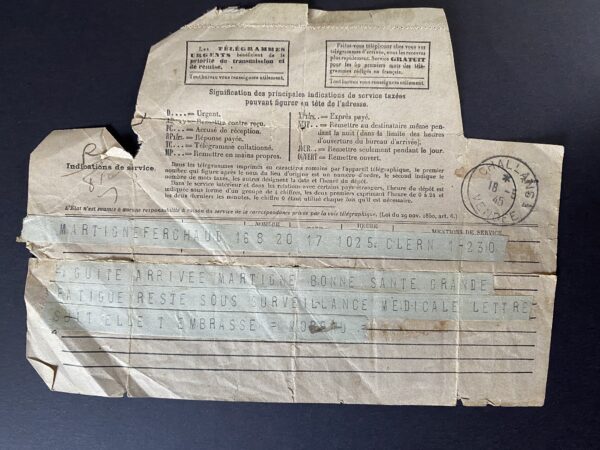 Les TÉLÉGRAMMES
URGENTS bénéficient de la
priorité de transmission et
de remise.
Tout bureau vous renseignera utilement.
Faites-vous téléphoner chez vous vos
télégrammes d'arrivée, vous les recevrez
plus rapidement. Service GRATUIT
pour les 50 premiers mots des télé-
grammes rédigés en français.
Tout bureau vous renseignera utilement.
Signification des principales indications de service taxées
pouvant figurer en tête de l'adresse.
D.... = Urgent.
= Remettre contre reçu.
PC... = Accusé de réception.
RPx.. = Réponse payée.
TC... = Télégramme collationné.
MP... = Remettre en mains propres.
XPx.. = Exprès payé.
NUIT. = Remettre au destinataire même pen-
dant la nuit (dans la limite des heures
d'ouverture du bureau d'arrivée).
JOUR. = Remettre seulement pendant le jour.
OUVERT = Remettre ouvert.
Indications de service.
Dans les télégrammes imprimés en caractères romains par l'appareil télégraphique, le premier
nombre qui figure après le nom du lieu d'origine est un numéro d'ordre, le second indique le
nombre de mots taxés, les autres désignent la date et l'heure de dépôt.
Dans le service intérieur et dans les relations avec certains pays étrangers, l'heure de dépôt est
indiquée sous forme d'un groupe de 4 chiffres, les deux premiers exprimant l'heure de 0 à 24 et
les deux derniers les minutes.
L'État n'est soumis à aucune responsabilité à raison du service de la correspondance privée par la voie télégraphique. (Loi du 29 nov. 1850, art. 6.)
CHALLANS
18 - 5
45
VENDÉE
MENTIONS DE SERVICE
MARTIGNEFERCHAUD 168 20 17 1025 CLERN 1-230
GUITE ARRIVEE MARTIGNE BONNE SANTE GRANDE
FATIGUE RESTE SOUS SURVEILLANCE MEDICALE LETTRE
SUIT ELLE T EMBRASSE =